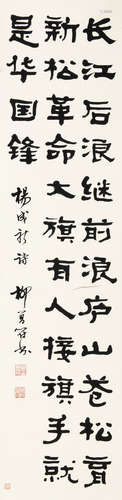 长江后浪继前浪庐山苍松育
新松革命大旗有人接旗手就
是华国锋
杨成新诗